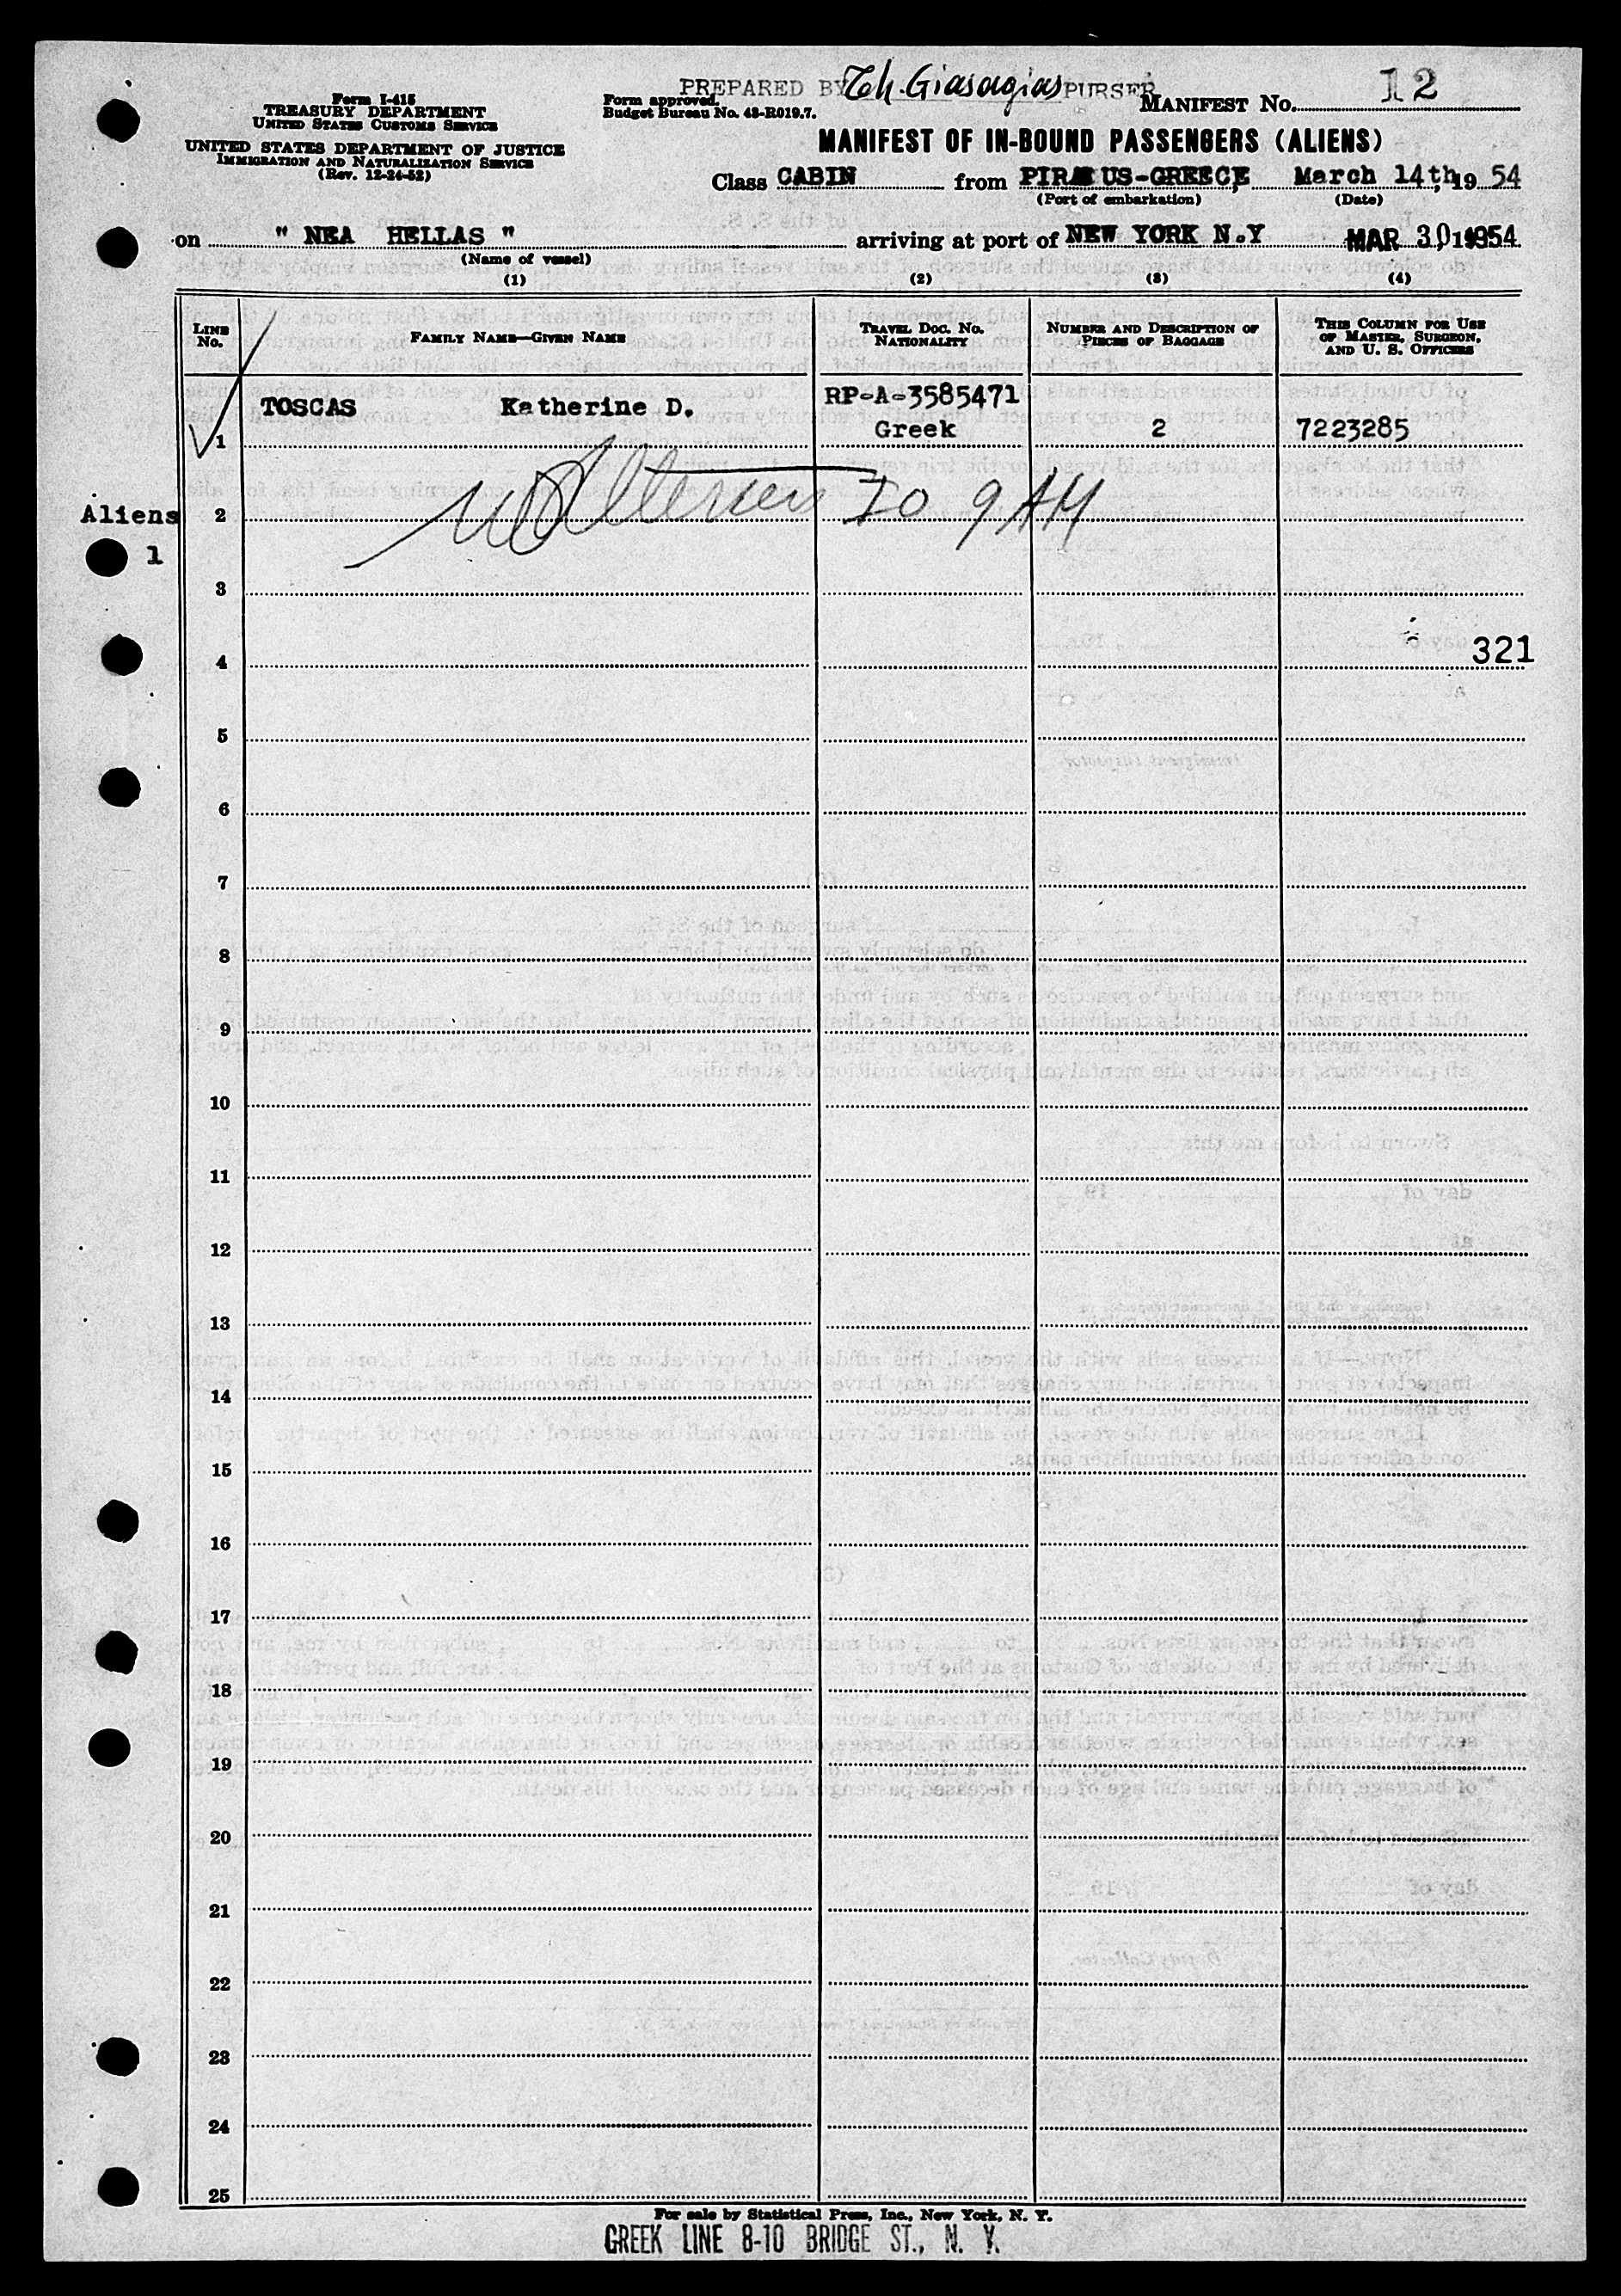 PREPARED BY Th. Giasagias PURSER
Form I-415
TREASURY DEPARTMENT
UNITED STATES CUSTOMS SERVICE
UNITED STATES DEPARTMENT OF JUSTICE
IMMIGRATION AND NATURALIZATION SERVICE
(Rev. 12-24-52)
Form approved.
Budget Bureau No. 43-R019.7.
MANIFEST NO. 12
MANIFEST OF IN-BOUND PASSENGERS (ALIENS)
Class CABIN from PIRAEUS-GREECE, March 14th, 19 54
(Port of embarkation) (Date)
on " NEA HELLAS " arriving at port of NEW YORK N.Y MAR 30 1954
(Name of vessel)
(1) (2) (3) (4)
LINE NO. FAMILY NAME—GIVEN NAME TRAVEL DOC. NO. NATIONALITY NUMBER AND DESCRIPTION OF PIECES OF BAGGAGE THIS COLUMN FOR USE OF MASTER, SURGEON, AND U. S. OFFICERS
TOSCAS Katherine D. RP-A-3585471
1 Greek 2 7223285
Aliens 2 IO 9 AM
1
3
4 321
5
6
7
8
9
10
11
12
13
14
15
16
17
18
19
20
21
22
23
24
25
For sale by Statistical Press, Inc., New York, N. Y.
GREEK LINE 8-10 BRIDGE ST., N. Y.